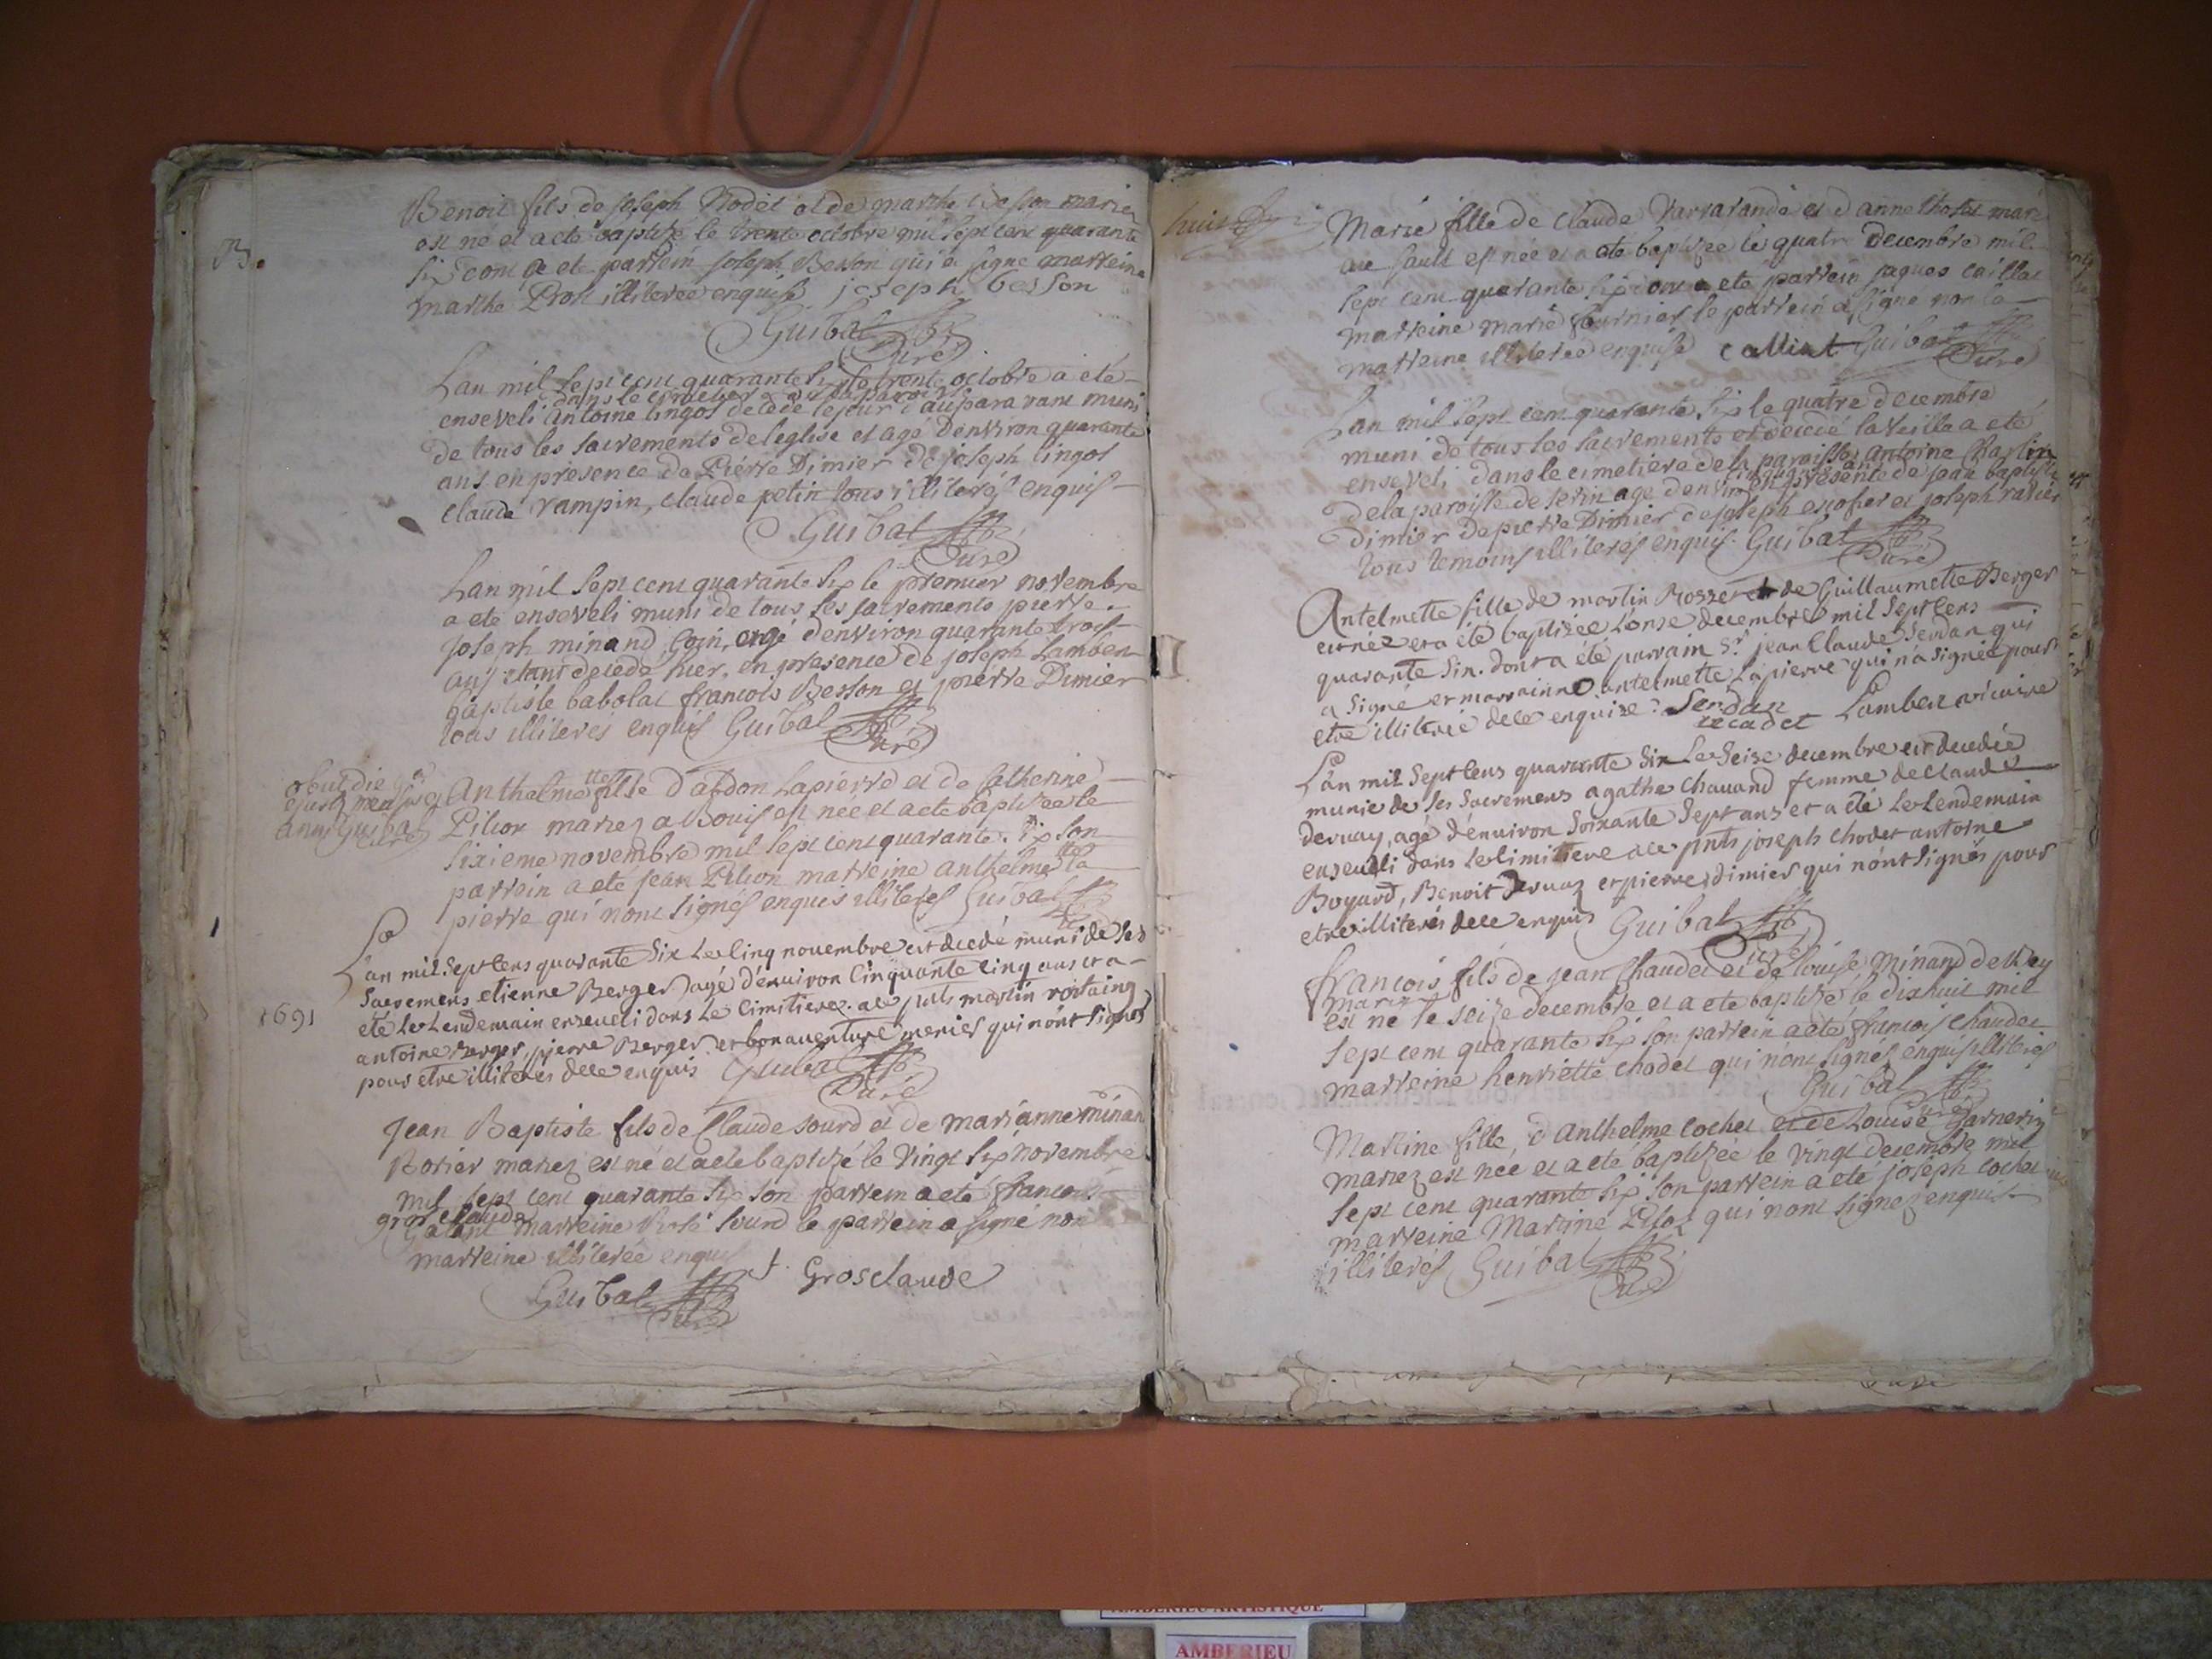 B.
Benoit fils de joseph Nodet et de marthe Besson mariez
est né et a eté baptizé le trente octobre mil sept cent quarante
six dont a eté parrein joseph Besson qui a signé marreine
marthe Prost illiterée enquise joseph besson
Guibal
Curé
Lan mil sept cent quarante six le trente octobre a eté
dans le cimetiere de la paroisse
enseveli antoine lingot decedé le jour d'auparavant muni
de tous les sacrements de leglise et agé d'environ quarante
ans en presence de Pierre Dimier de joseph lingot
claude rampin, claude petin tous illiterés enquis
Guibal
Curé
Lan mil sept cent quarante six le premier novembre
a eté enseveli muni de tous les sacrements pierre
joseph minand Goin, agé d'environ quarante trois
ans etant decedé hier, en presence de joseph Lambert
baptiste babolat francois Besson et pierre Dimier
tous illiterés enquis Guibal
Curé
obiit die
ejusdem mensis et
anni Guibal
Curé
Anthelmette fille d'abdon Lapierre et de Catherine
Pilion mariez a Bouis est née et a eté baptizée le
sixieme novembre mil sept cent quarante six son
parrein a eté jean Pilion marreine anthelmette la
pierre qui nont signés enquis illiterés Guibal
Curé
1691
L'an mil sept cens quarante six le cinq novembre est decedé muni de ses
sacremens etienne Berger agé d'environ cinquante cinq ans et a
eté le lendemain enseveli dans le cimitiere. a ce pnts martin rostaing
antoine Berger, pierre Berger et bonaventure menier qui n'ont signés
pour etre illiterés de ce enquis Guibal
Curé
Jean Baptiste fils de Claude sourd et de marianne minand
Rosier mariez est né et a eté baptizé le vingt six novembre
mil sept cent quarante six son parrein a eté francois
gros claude
marreine sourd le parrein a signé non
marreine illiterée enquis f. Grosclaude
Guibal
Curé
Marie fille de claude Varvarande et d'anne chodet mariez
au sault est née et a eté baptizée le quatre decembre mil
sept cent quarante six dont a eté parrein jaques caillat
marreine marie fournier le parrein a signé non la
marreine illiterée enquise calliat Guibal
Curé
Lan mil sept cent quarante six le quatre decembre
muni de tous les sacrements et decedé la veille a eté
enseveli dans le cimetiere de la paroisse antoine Martin
de la paroisse de serin agé d'environ en presence de jean baptiste
dimier de pierre Dimier de joseph escofier et joseph ravier
tous temoins illiterés enquis Guibal
Curé
Antelmette fille de martin Rosset et de Guillaumette Berger
est née et a été baptisée l'onse decembre mil sept cens
quarante six. dont a été parrain Sr. jean Claude Serdan qui
a signé et marrainne antelmette Lapierre qui n'a signée pour
etre illiterée de ce enquise. Serdan
le cadet Lambert vicaire
L'an mil sept cens quarante six le seise decembre est decedée
munie de ses sacremens agathe chavand femme de claude
dervay, agé d'environ soixante sept ans et a été le lendemain
enseveli dans le cimitiere a ce pnts joseph chodet antoine
Boyard, Benoit dervaz et pierre dimier qui n'ont signés pour
etre illiterés de ce enquis Guibal
Curé
francois fils de jean Chaudet et de louise minand de Rey
mariez
est né le seize decembre et a eté baptizé le dixhuit mil
sept cent quarante six son parrein a eté francois chaudet
marreine henriette chodet qui nont signéz enquis illiterés
Guibal
Curé
Martine fille d'Anthelme cochet et de Louise Garnerin
mariez est née et a eté baptizée le vingt decembre mil
sept cent quarante six son parrein a eté joseph cochet
marreine Martine Piloz qui nont signez enquis
illiterés Guibal
Curé
AMBERIEU ARTISTIQUE
AMBERIEU